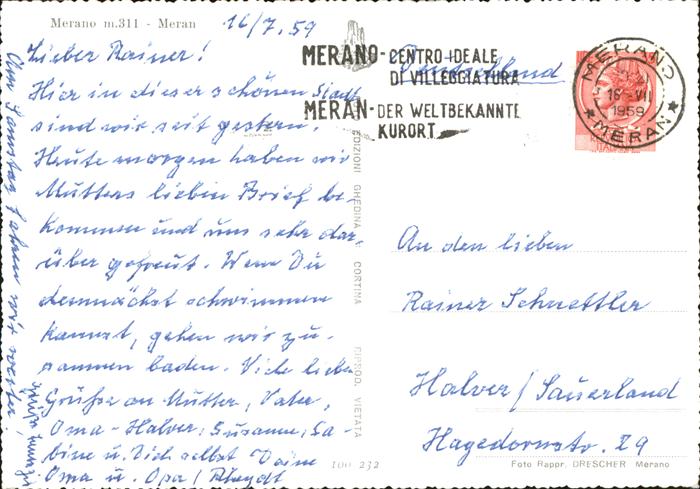 Merano m.311 - Meran
16/7.59
Lieber Rainer!
Hier in dieser schönen Stadt
sind wir seit gestern.
Heute morgen haben wir
Mutters lieben Brief be-
kommen und uns sehr dar-
über gefreut. Wenn Du
demnächst schwimmen
kannst, gehen wir zu-
sammen baden. Viele liebe
Grüße an Mutter, Vater,
Oma-Halver, Susanne, Sa-
bine u. Dich selbst Deine
Oma u. Opa/Rheydt
Am Samstag fahren wir weiter,
EDIZIONI GHEDINA CORTINA RIPROD. VIETATA
100 232
MERANO-CENTRO IDEALE
DI VILLEGGIATURA
MERAN-DER WELTBEKANNTE
KURORT
Deutschland
MERANO
16-VII
1959
MERAN
An den lieben
Rainer Schnettler
Halver/Sauerland
Hagedornstr. 29
Foto Rappr. DRESCHER Merano